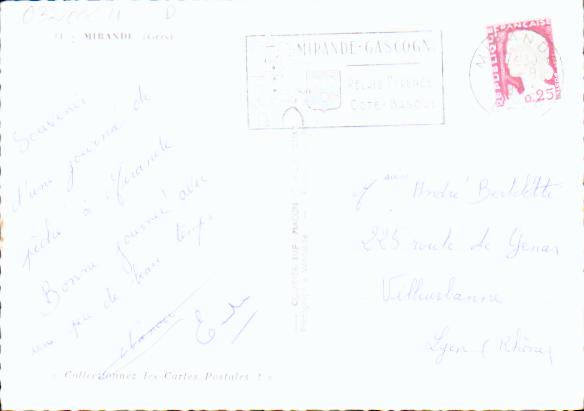 MIRANDE (Gers)
MIRANDE-GASCOGNE
RELAIS PYRÉNÉES
COTE-BASQUE
RÉPUBLIQUE FRANÇAISE
0,25
Souvenir
d'une journée de
pêche à Mirande
Bonne journée avec
un peu de beau temps
André Bertolotti
225 route de Genas
Villeurbanne
Lyon (Rhône)
« Collectionnez les Cartes Postales ! »